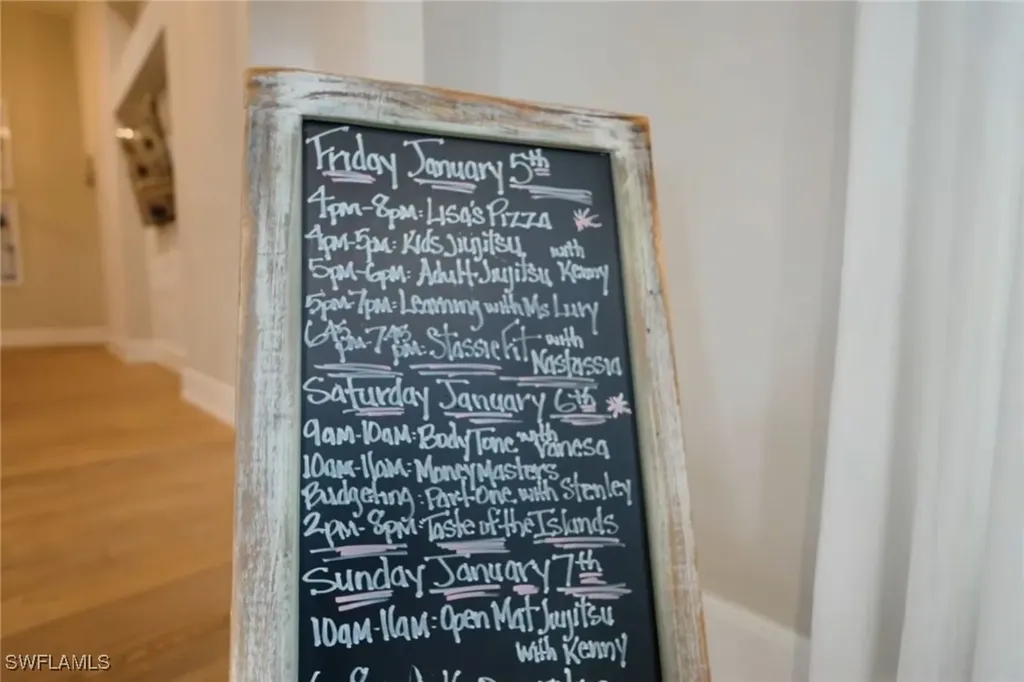 Friday January 5th
4pm-8pm: Lisa's Pizza
4pm-5pm: Kids Jiujitsu with
5pm-6pm: Adult Jiujitsu Kenny
5pm-7pm: Learning with Ms Lury
6:45pm-7:45pm: Stassie Fit with Nastassia
Saturday January 6th
9am-10am: Body Tone with Vanesa
10am-11am: Money Masters
Budgeting: Part One with Stenley
2pm-8pm: Taste of the Islands
Sunday January 7th
10am-11am: Open Mat Jiujitsu
with Kenny
SWFLAMLS